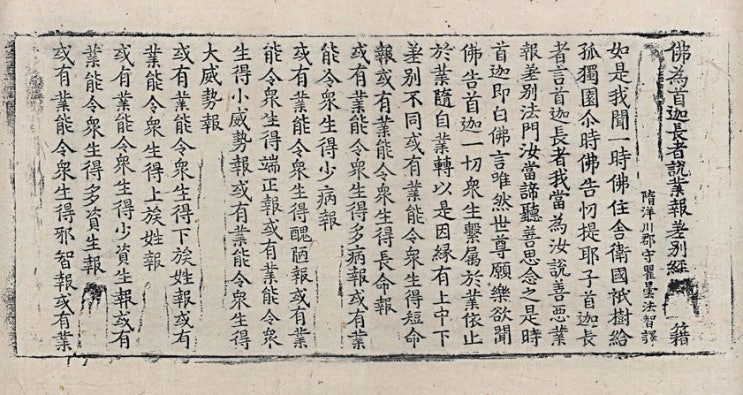 佛為首迦長者說業報差別經 籍
隋洋川郡守瞿曇法智譯
如是我聞一時佛住舍衛國祇樹給
孤獨園尒時佛告忉提耶子首迦長
者言首迦長者我當為汝說善惡業
報差別法門汝當諦聽善思念之是時
首迦即白佛言唯然世尊願樂欲聞
佛告首迦一切衆生繫属於業依止
於業隨自業轉以是因緣有上中下
差別不同或有業能令衆生得短命
報或有業能令衆生得長命報
或有業能令衆生得多病報或有業
能令衆生得少病報
或有業能令衆生得醜陋報或有業
能令衆生得端正報或有業能令衆
生得小威勢報或有業能令衆生得
大威勢報
或有業能令衆生得下族姓報或有
業能令衆生得上族姓報
或有業能令衆生得少資生報或有
業能令衆生得多資生報
或有業能令衆生得邪智報或有業